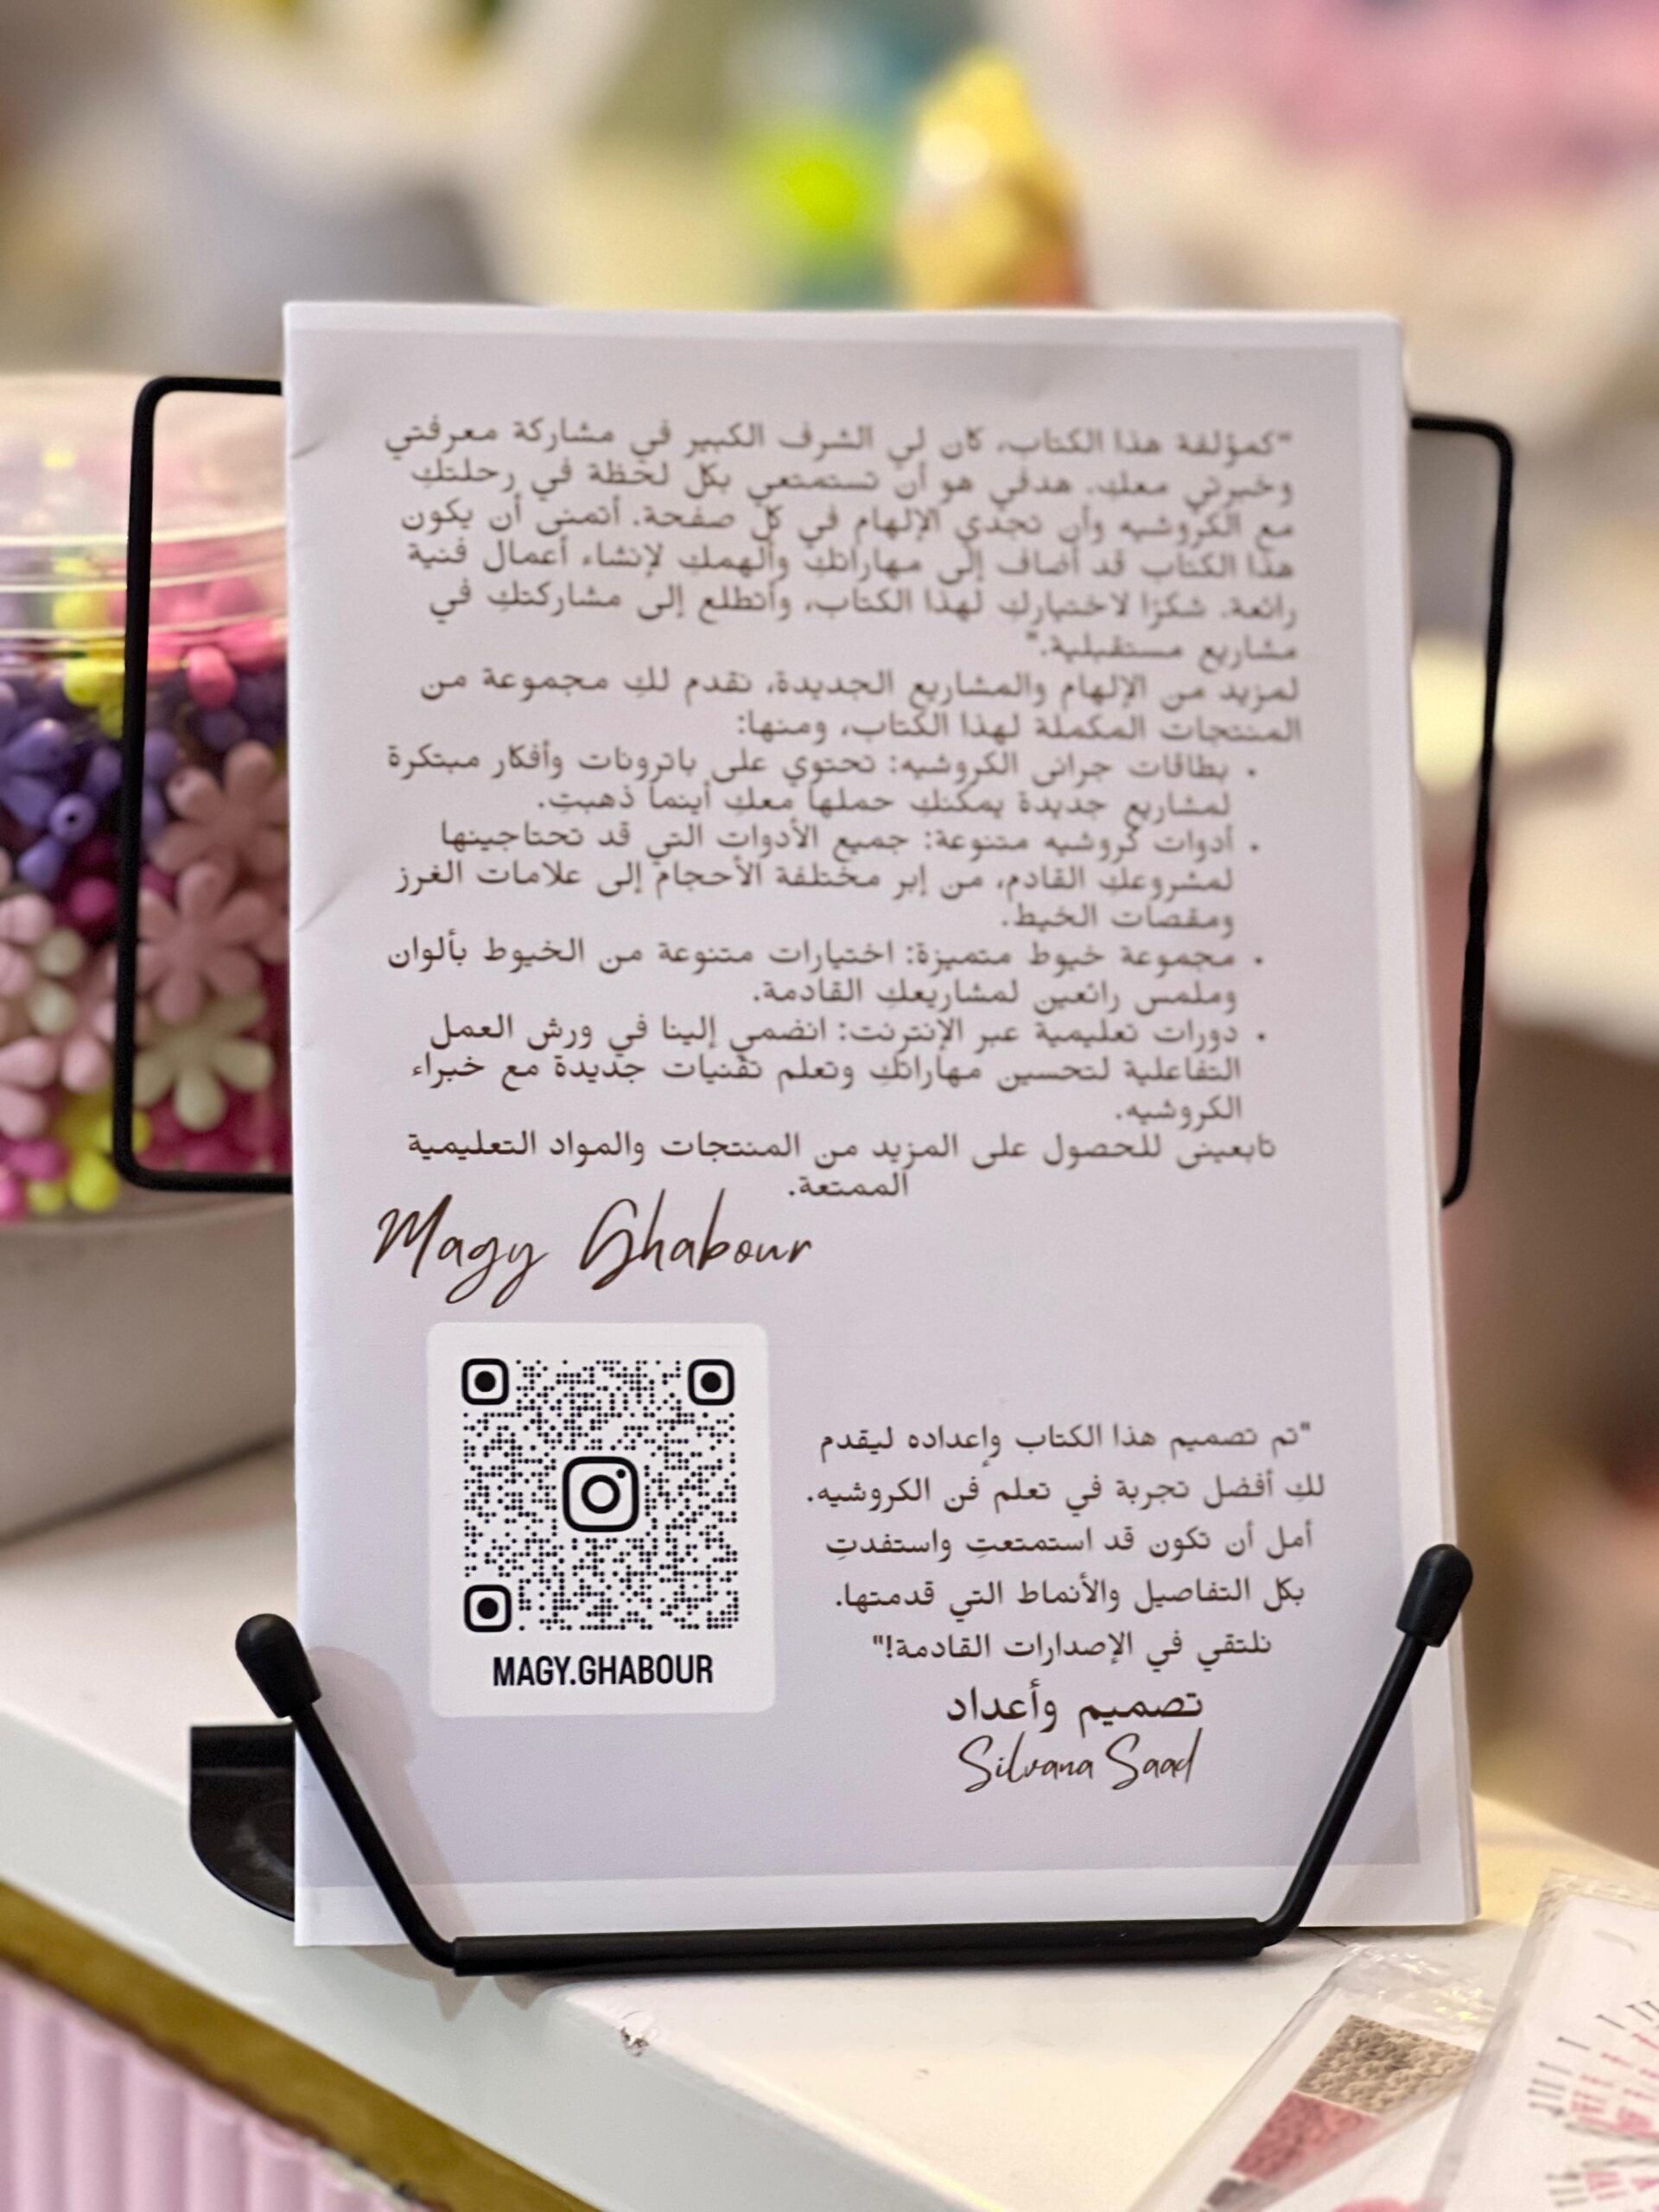 "كمؤلفة هذا الكتاب، كان لي الشرف الكبير في مشاركة معرفتي
وخبرتي معكِ. هدفي هو أن تستمتعي بكل لحظة في رحلتكِ
مع الكروشيه وأن تجدي الإلهام في كل صفحة. أتمنى أن يكون
هذا الكتاب قد أضاف إلى مهاراتكِ وألهمكِ لإنشاء أعمال فنية
رائعة. شكرًا لاختياركِ لهذا الكتاب، وأتطلع إلى مشاركتكِ في
مشاريع مستقبلية."
لمزيد من الإلهام والمشاريع الجديدة، نقدم لكِ مجموعة من
المنتجات المكملة لهذا الكتاب، ومنها:
• بطاقات جرانى الكروشيه: تحتوي على باترونات وأفكار مبتكرة
لمشاريع جديدة يمكنكِ حملها معكِ أينما ذهبتِ.
• أدوات كروشيه متنوعة: جميع الأدوات التي قد تحتاجينها
لمشروعكِ القادم، من إبر مختلفة الأحجام إلى علامات الغرز
ومقصات الخيط.
• مجموعة خيوط متميزة: اختيارات متنوعة من الخيوط بألوان
وملمس رائعين لمشاريعكِ القادمة.
• دورات تعليمية عبر الإنترنت: انضمي إلينا في ورش العمل
التفاعلية لتحسين مهاراتكِ وتعلم تقنيات جديدة مع خبراء
الكروشيه.
تابعينى للحصول على المزيد من المنتجات والمواد التعليمية
الممتعة.
Magy Ghabour
MAGY.GHABOUR
"تم تصميم هذا الكتاب وإعداده ليقدم
لكِ أفضل تجربة في تعلم فن الكروشيه.
أمل أن تكون قد استمتعتِ واستفدتِ
بكل التفاصيل والأنماط التي قدمتها.
نلتقي في الإصدارات القادمة!"
تصميم وأعداد
Silvana Saad